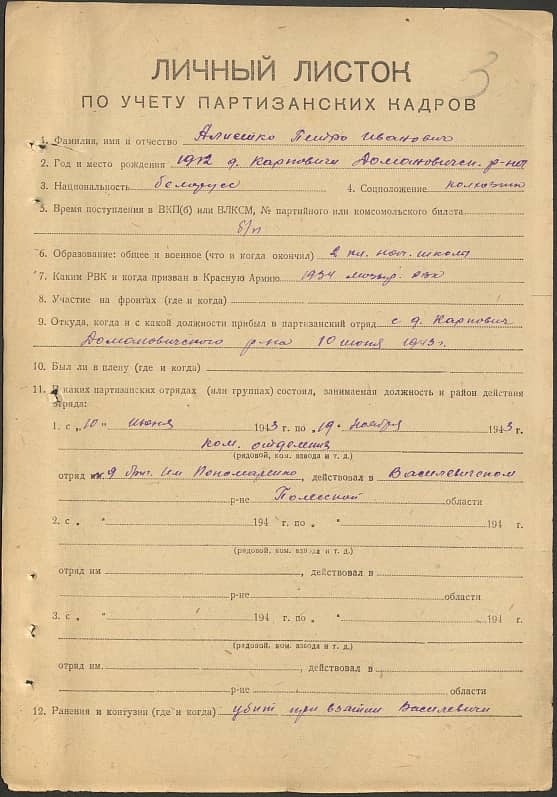 3
ЛИЧНЫЙ ЛИСТОК
ПО УЧЕТУ ПАРТИЗАНСКИХ КАДРОВ
1. Фамилия, имя и отчество Алисейко Петро Иванович
2. Год и место рождения 1912 д. Карповичи Домановичск. р-на
3. Национальность белорусс 4. Соцположение колхозник
5. Время поступления в ВКП(б) или ВЛКСМ, № партийного или комсомольского билета
б/п
6. Образование: общее и военное (что и когда окончил) 2 кл. нач. школа
7. Каким РВК и когда призван в Красную Армию 1934 мозыр. РВК
8. Участие на фронтах (где и когда)
9. Откуда, когда и с какой должности прибыл в партизанский отряд с д. Карпович
Домановичского р-на 10 июня 1943 г.
10. Был ли в плену (где и когда)
11. В каких партизанских отрядах (или группах) состоял, занимаемая должность и район действия
отряда:
1. с „10" июня 1943 г. по „19" ноября 1943 г.
ком. отделения
(рядовой, ком. взвода и т. д.)
отряд 9 бриг. им Пономаренко, действовал в Василевичском
р-не Полесской области
2. с „ " 194 г. по „ " 194 г.
(рядовой, ком. взвода и т. д.)
отряд им , действовал в
р-не области
3. с „ " 194 г. по „ " 194 г.
(рядовой, ком. взвода и т. д.)
отряд им. , действовал в
р-не области
12. Ранения и контузии (где и когда) убит при взятии Василевичи